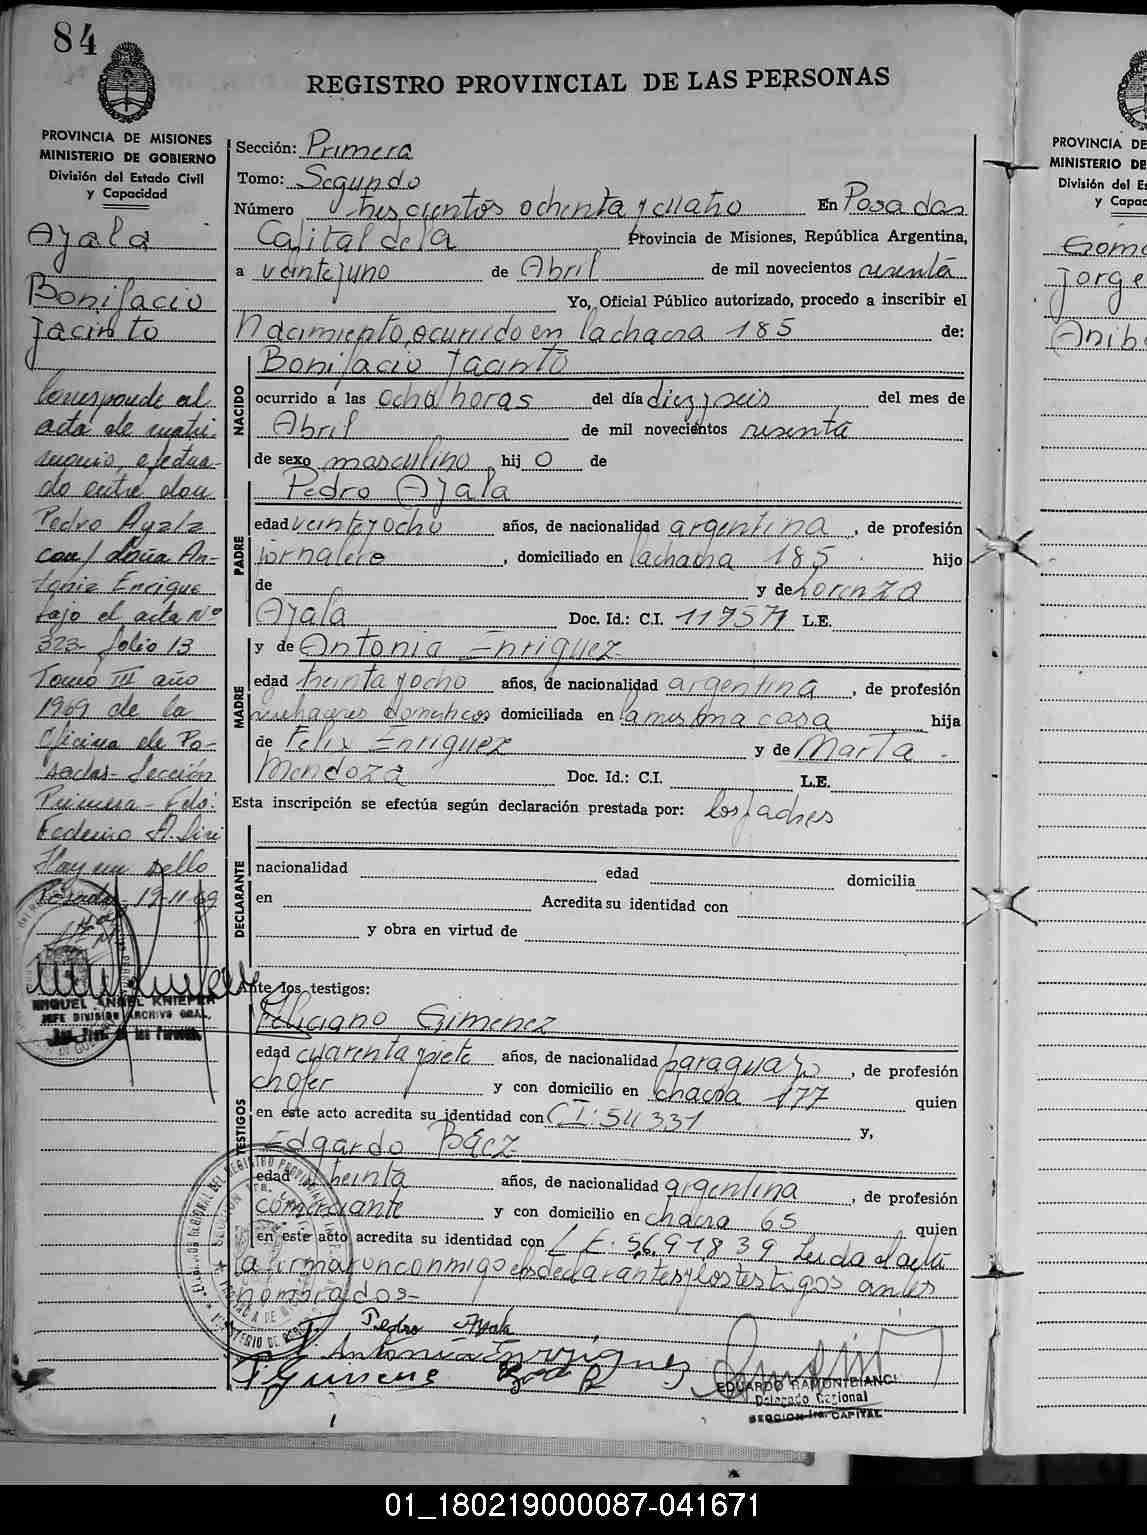 84
REGISTRO PROVINCIAL DE LAS PERSONAS
PROVINCIA DE MISIONES
MINISTERIO DE GOBIERNO
División del Estado Civil
y Capacidad
Ayala
Bonifacio
Jacinto
Corresponde al
acta de matri-
monio, efectua-
do entre don
Pedro Ayala
con/ doña An-
tonia Enrique
bajo el acta Nº
323- folio 13
Tomo III año
1969 de la
Oficina de Po-
sadas- Sección
Primera- Fdo:
Federico A.
Hay un sello
Posadas- 19-11-69
MIGUEL ANGEL KNIEPER
JEFE DIVISION ARCHIVO GRAL.
Reg. Prov. de las Personas
Sección: Primera
Tomo: Segundo
Número trescientos ochenta y cuatro En Posadas
Capital de la Provincia de Misiones, República Argentina,
a veinte y uno de Abril de mil novecientos sesenta
Yo, Oficial Público autorizado, procedo a inscribir el
Nacimiento, ocurrido en la chacra 185 de:
NACIDO
Bonifacio Jacinto
ocurrido a las ocho horas del día diez y seis del mes de
Abril de mil novecientos sesenta
de sexo masculino, hij o de
PADRE
Pedro Ayala
edad veinte y ocho años, de nacionalidad argentina, de profesión
jornalero, domiciliado en la chacra 185 hijo
de y de Lorenza
Ayala Doc. Id.: C.I. 117571 L.E.
MADRE
y de Antonia Enriquez
edad treinta y ocho años, de nacionalidad argentina, de profesión
quehaceres domesticos domiciliada en la misma casa hija
de Felix Enriquez y de Marta
Mendoza Doc. Id.: C.I. L.E.
Esta inscripción se efectúa según declaración prestada por: los padres
DECLARANTE
nacionalidad edad domicilia
en Acredita su identidad con
y obra en virtud de
Ante los testigos:
TESTIGOS
Feliciano Gimenez
edad cuarenta y siete años, de nacionalidad paraguayo, de profesión
chofer y con domicilio en chacra 177 quien
en este acto acredita su identidad con CI: 54331 y,
Edgardo Báez
edad treinta años, de nacionalidad argentina, de profesión
comerciante y con domicilio en chacra 65 quien
en este acto acredita su identidad con L E. 5691839 Leida el acta
la firmaron conmigo los declarantes y los testigos antes
nombrados-
Pedro Ayala
Antonia Enriquez
EDUARDO RAMON BIANCHI
Delegado Regional
SECCION 1ra. CAPITAL
PROVINCIA DE
MINISTERIO DE
División del Es
y Capac
Gome
Jorge
Aniba
01_180219000087-041671